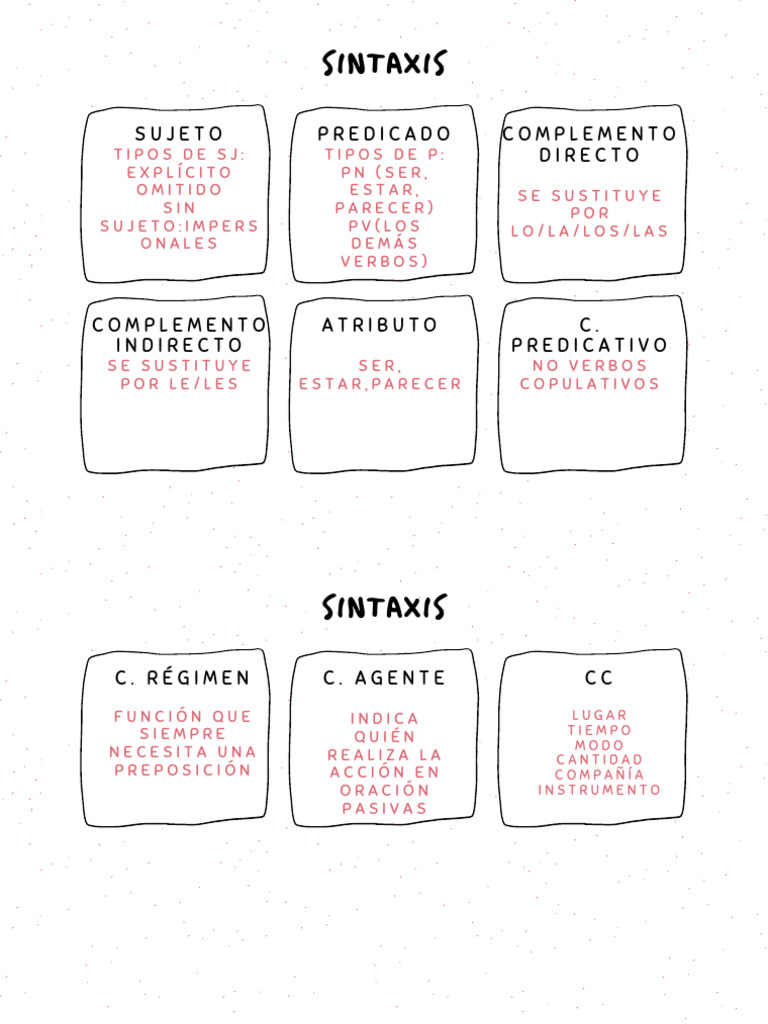 SINTAXIS
SUJETO
TIPOS DE SJ:
EXPLÍCITO
OMITIDO
SIN
SUJETO:IMPERS
ONALES
PREDICADO
TIPOS DE P:
PN (SER,
ESTAR,
PARECER)
PV(LOS
DEMÁS
VERBOS)
COMPLEMENTO
DIRECTO
SE SUSTITUYE
POR
LO/LA/LOS/LAS
COMPLEMENTO
INDIRECTO
SE SUSTITUYE
POR LE/LES
ATRIBUTO
SER,
ESTAR,PARECER
C.
PREDICATIVO
NO VERBOS
COPULATIVOS
SINTAXIS
C. RÉGIMEN
FUNCIÓN QUE
SIEMPRE
NECESITA UNA
PREPOSICIÓN
C. AGENTE
INDICA
QUIÉN
REALIZA LA
ACCIÓN EN
ORACIÓN
PASIVAS
CC
LUGAR
TIEMPO
MODO
CANTIDAD
COMPAÑÍA
INSTRUMENTO